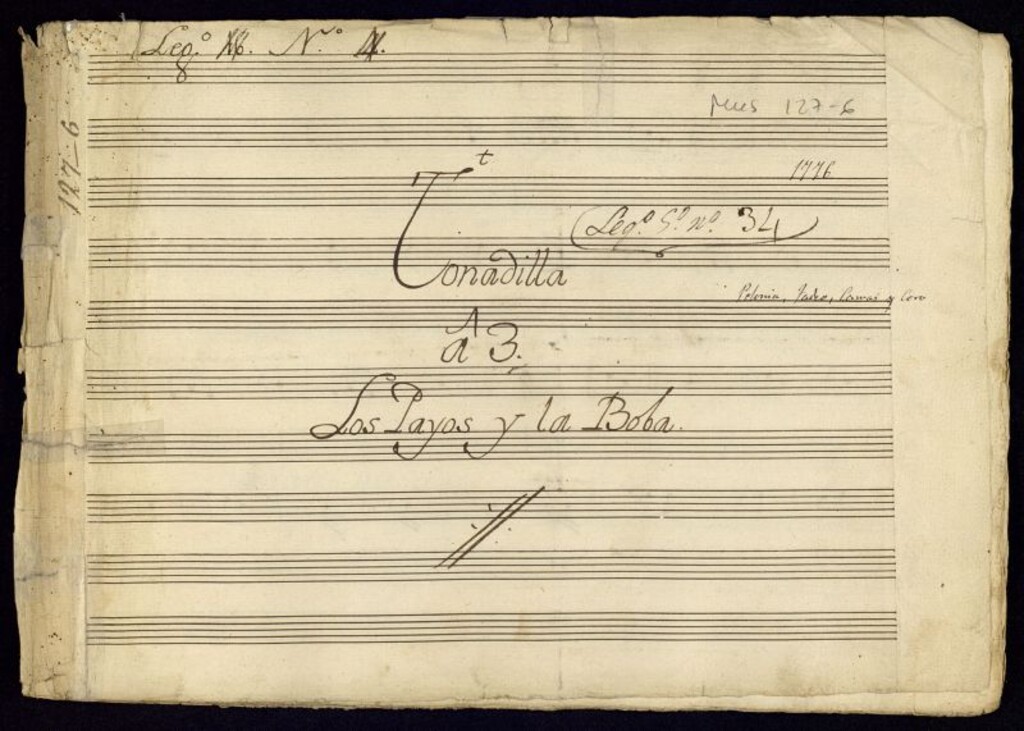 Leg.º N.º
8
Mus 127-6
127-6
1776
t
Tonadilla
Leg.º 5.º n.º 34
Polonia, Tadeo, y Coro
â 3.
Los Payos y la Boba.